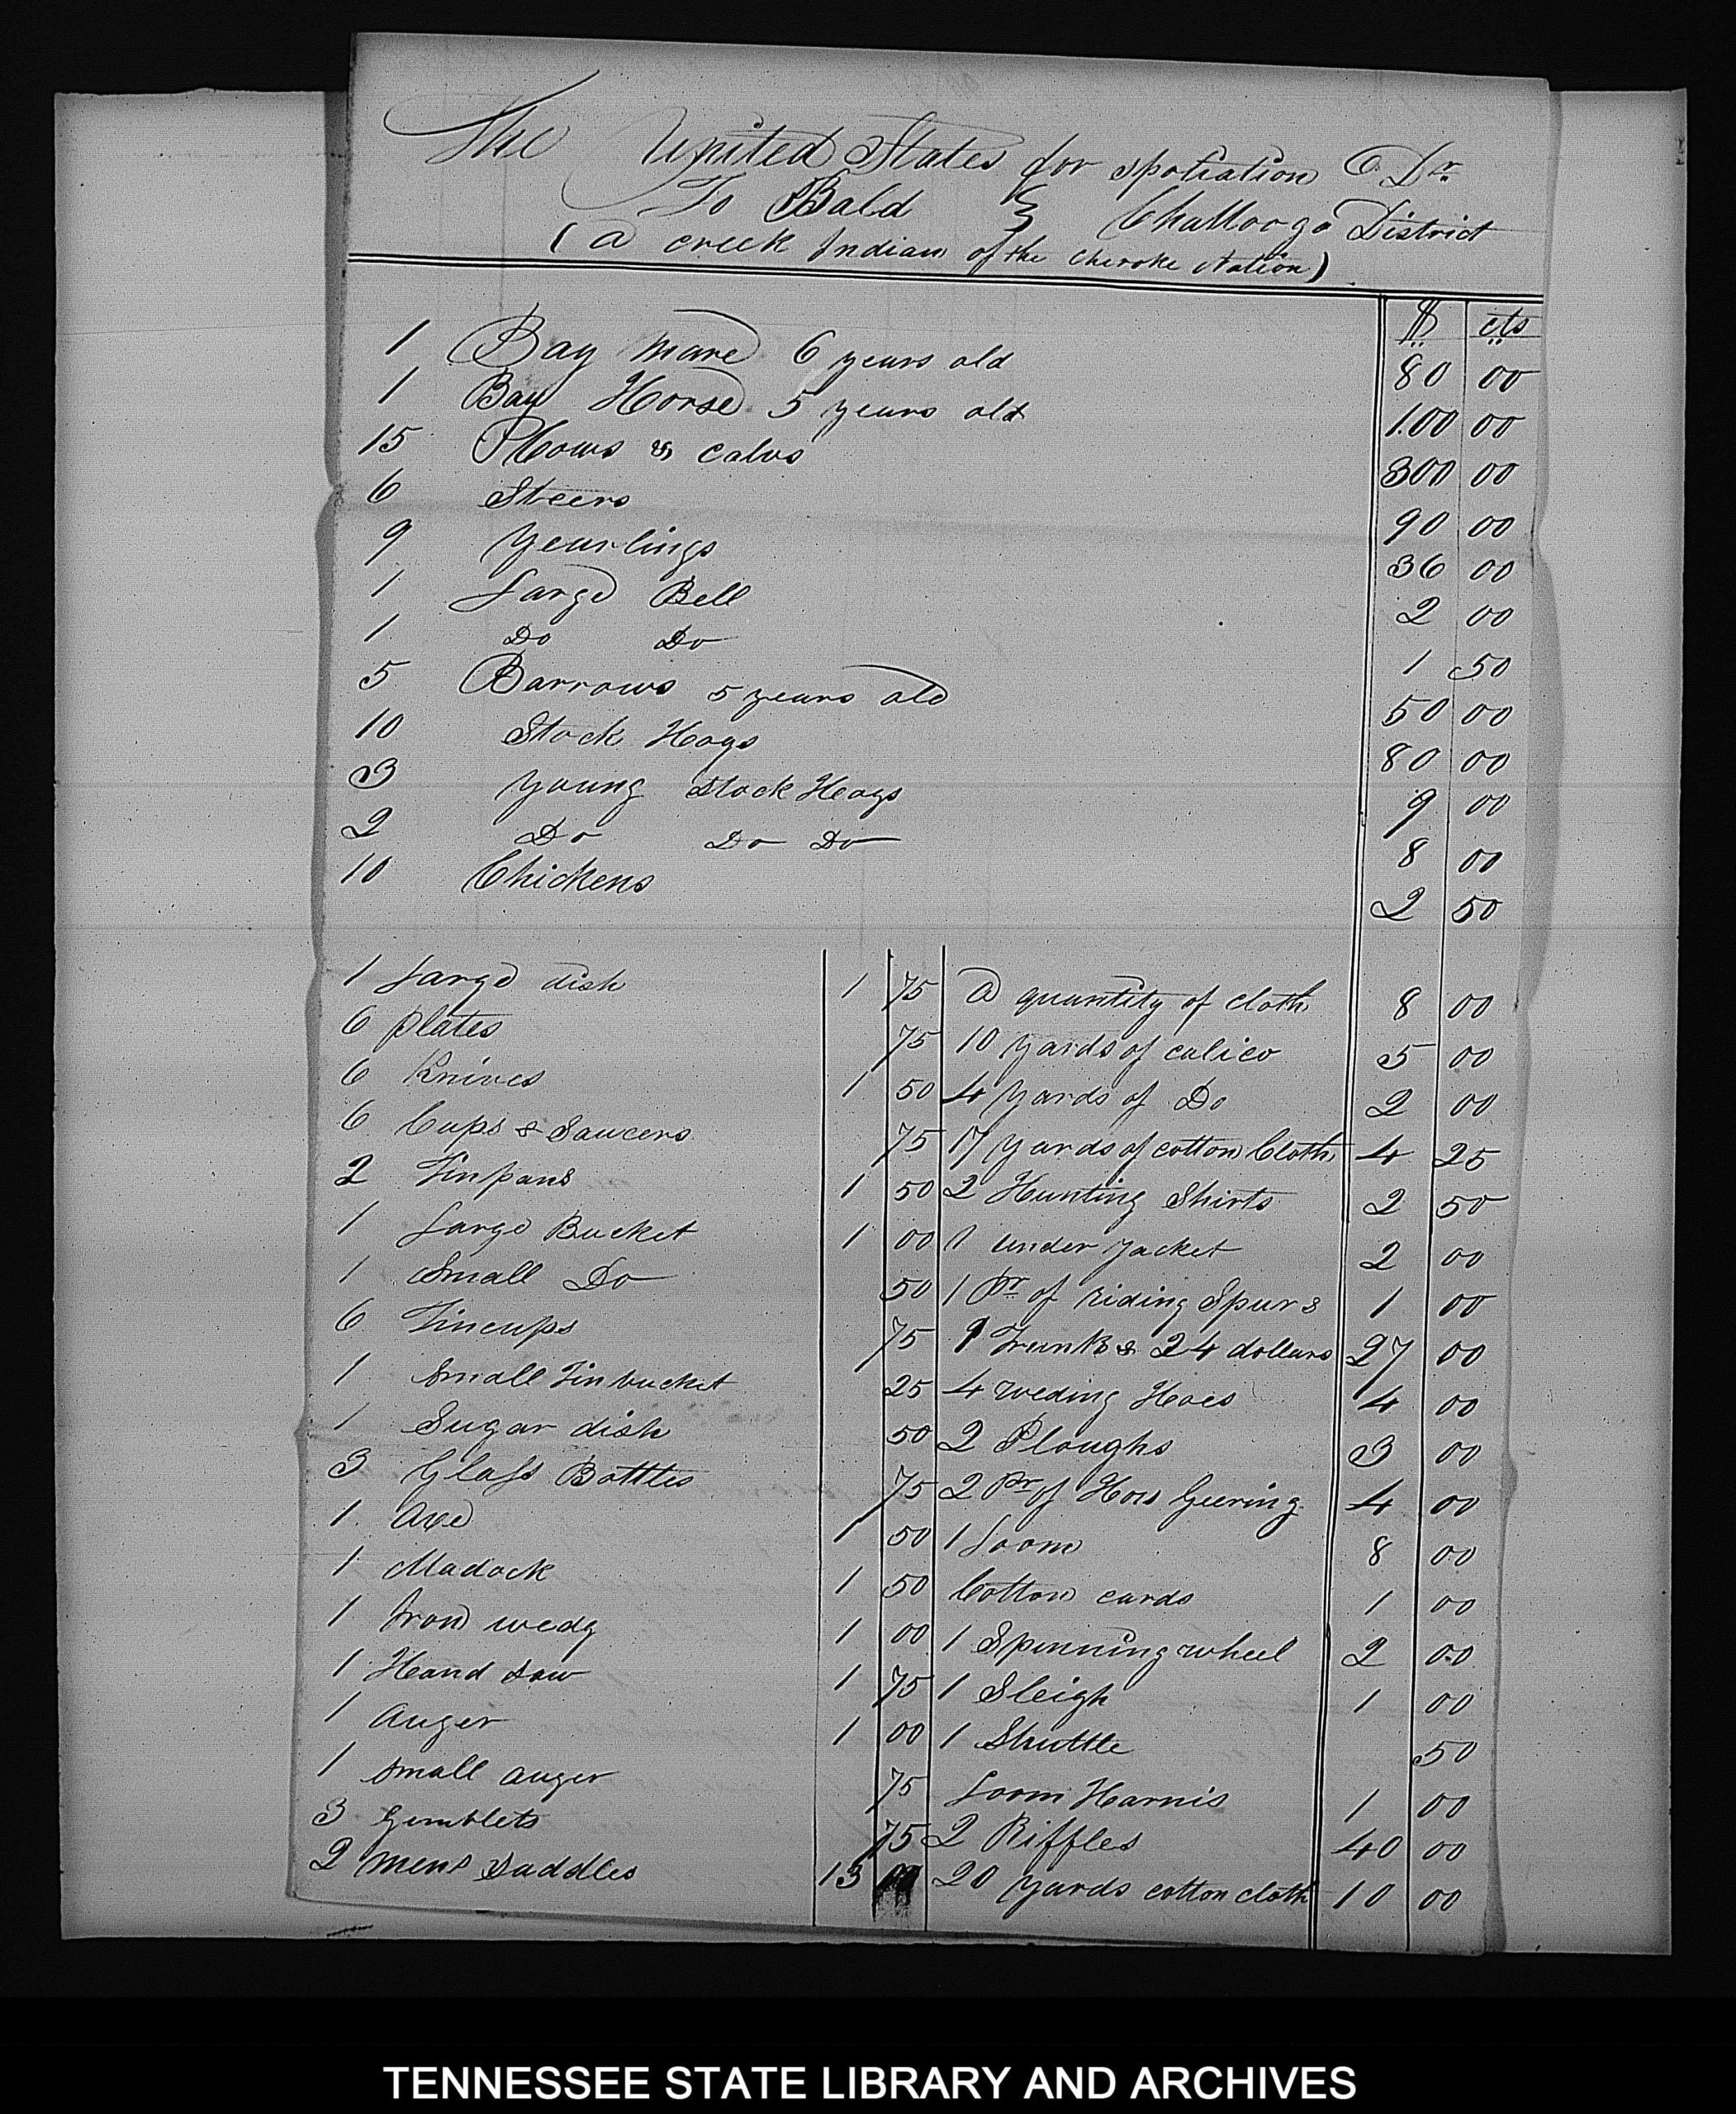 The United States for spoliation Dr.
To Bald } Challooga District
( a creek Indian of the cheroke Nation )
$ cts
1 Bay mare 6 years old 80 00
1 Bay Horse 5 years old 100 00
15 Cows & calvs 300 00
6 Steers 90 00
9 yearlings 36 00
1 Large Bell 2 00
1 Do Do 1 50
5 Barrows 5 years old 50 00
10 Stock Hogs 80 00
3 young stock Hogs 9 00
2 Do Do Do 8 00
10 Chickens 2 50
1 Large dish 1 75 a quantity of cloth 8 00
6 plates 75 10 yards of calico 5 00
6 Knives 1 50 4 yards of Do 2 00
6 Cups & Saucers 75 17 yards of cotton Cloth 4 25
2 Tinpans 1 50 2 Hunting Shirts 2 50
1 Large Bucket 1 00 1 under jacket 2 00
1 Small Do 50 1 Pr of riding Spurs 1 00
6 Tincups 75 1 Trunk & 24 dollars 27 00
1 Small Tin bucket 25 4 weding Hoes 4 00
1 Sugar dish 50 2 Ploughs 3 00
3 Glass Bottles 75 2 Pr of Hors Geering 4 00
1 Axe 1 50 1 Loom 8 00
1 Madock 1 50 Cotton cards 1 00
1 Iron wedg 1 00 1 Spinning wheel 2 00
1 Hand saw 1 75 1 Sleigh 1 00
1 Auger 1 00 1 Shuttle 50
1 small auger 75 Loom Harnis 1 00
3 Gimblets 75 2 Riffles 40 00
2 mens Saddles 13 00 20 yards cotton cloth 10 00
TENNESSEE STATE LIBRARY AND ARCHIVES